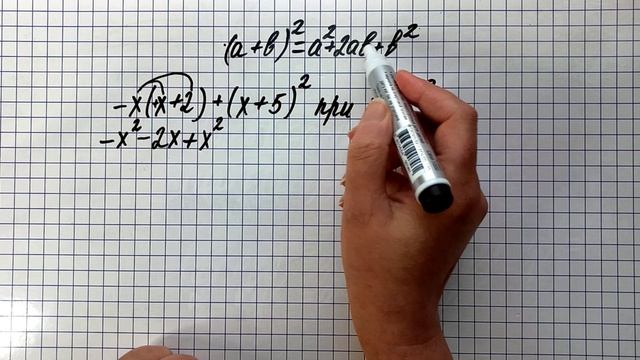 (a+b)²=a²+2ab+b²
-x(+x+2)+(x+5)² при
-x²-2x+x²